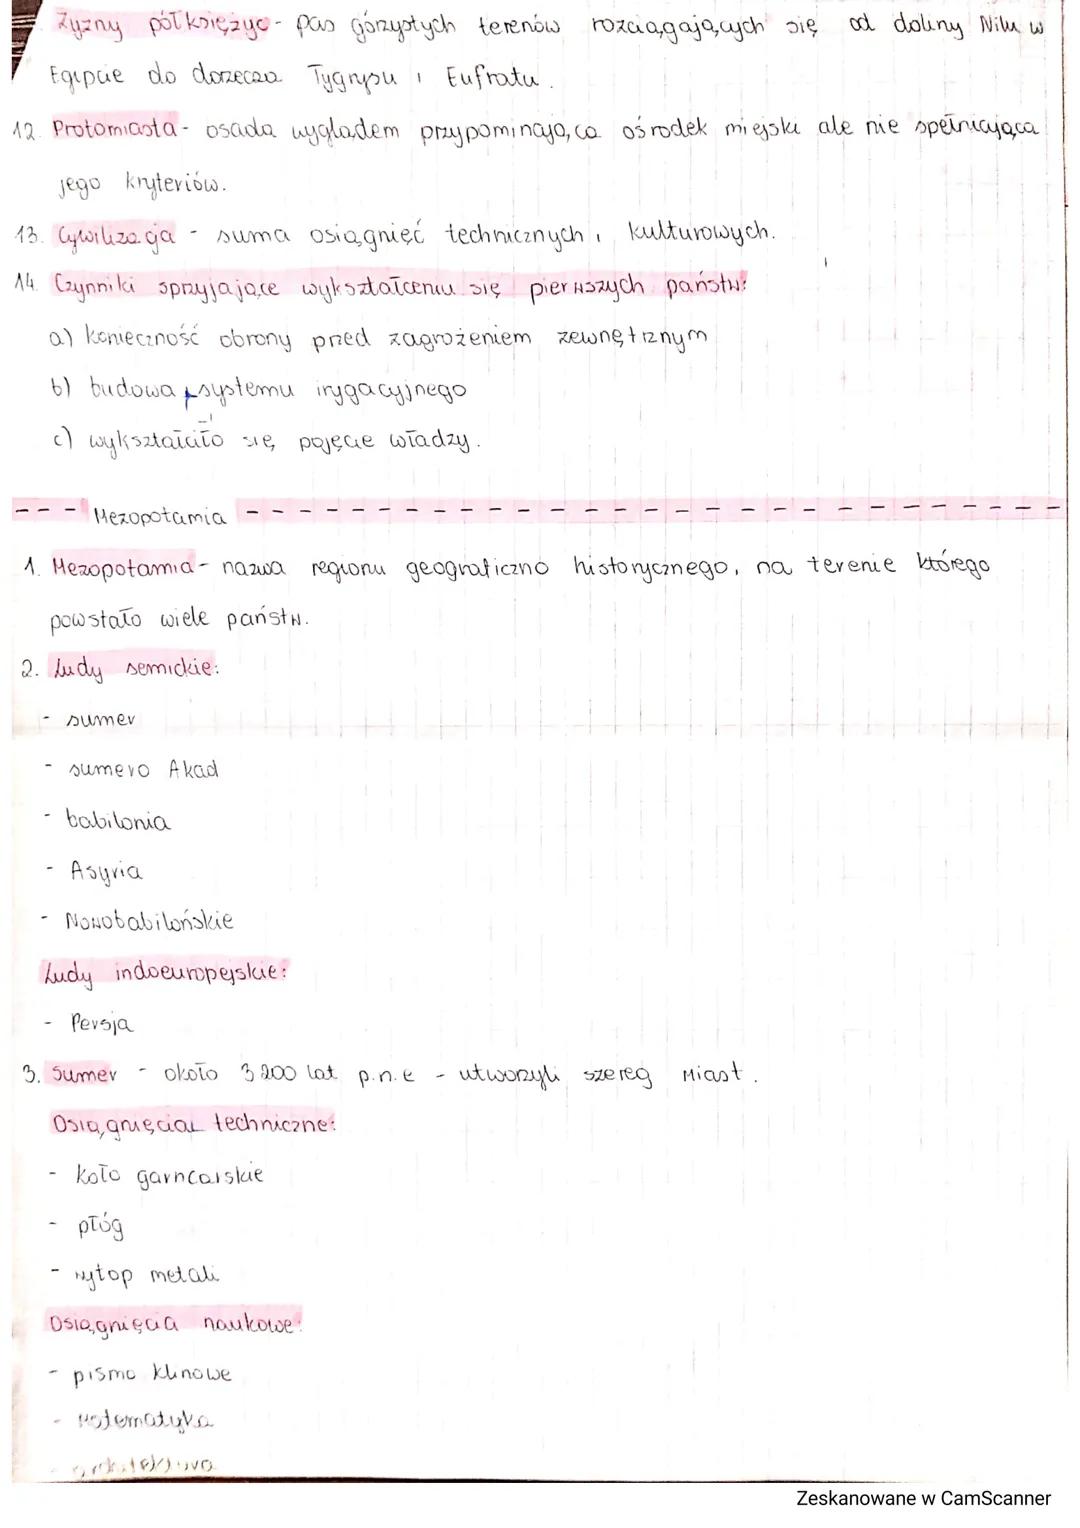 Żyzny półksiężyc - pas górzystych terenów rozciągających się od doliny Nilu w
Egipcie do dorzecza Tygrysu i Eufratu.
12. Protomiasta - osada wyglądem przypominająca ośrodek miejski ale nie spełniająca
jego kryteriów.
13. Cywilizacja - suma osiągnięć technicznych i kulturowych.
14. Czynniki sprzyjające wykształceniu się pierwszych państw:
a) konieczność obrony przed zagrożeniem zewnętrznym
b) budowa systemu irygacyjnego
c) wykształciło się pojęcie władzy.
--- Mezopotamia ---
1. Mezopotamia - nazwa regionu geograficzno historycznego, na terenie którego
powstało wiele państw.
2. Ludy semickie:
- sumer
- sumero Akad
- babilonia
- Asyria
- Nowobabilońskie
Ludy indoeuropejskie:
- Persja
3. Sumer - około 3200 lat p.n.e - utworzyli szereg miast.
Osiągnięcia techniczne:
- koło garncarskie
- płóg
- wytop metali
Osiągnięcia naukowe:
- pismo klinowe
- matematyka
- architektura
Zeskanowane w CamScanner